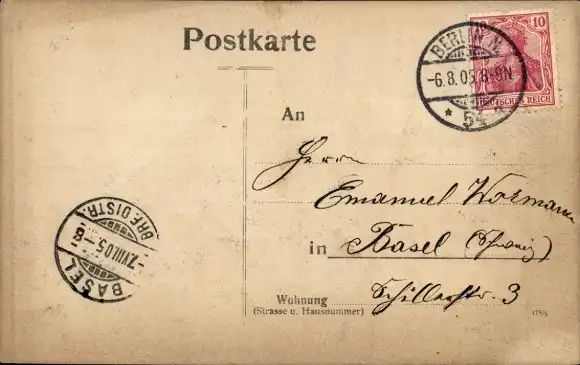 Postkarte
10
DEUTSCHES REICH
BERLIN N.
-6.8.05.8-9N
* 54
An
Herrn
Emanuel Wormann
in Basel (Schweiz)
Wohnung
(Strasse u. Hausnummer)
Schillerstr. 3
BASEL
-7.VIII.05.-
BRF.DISTR.